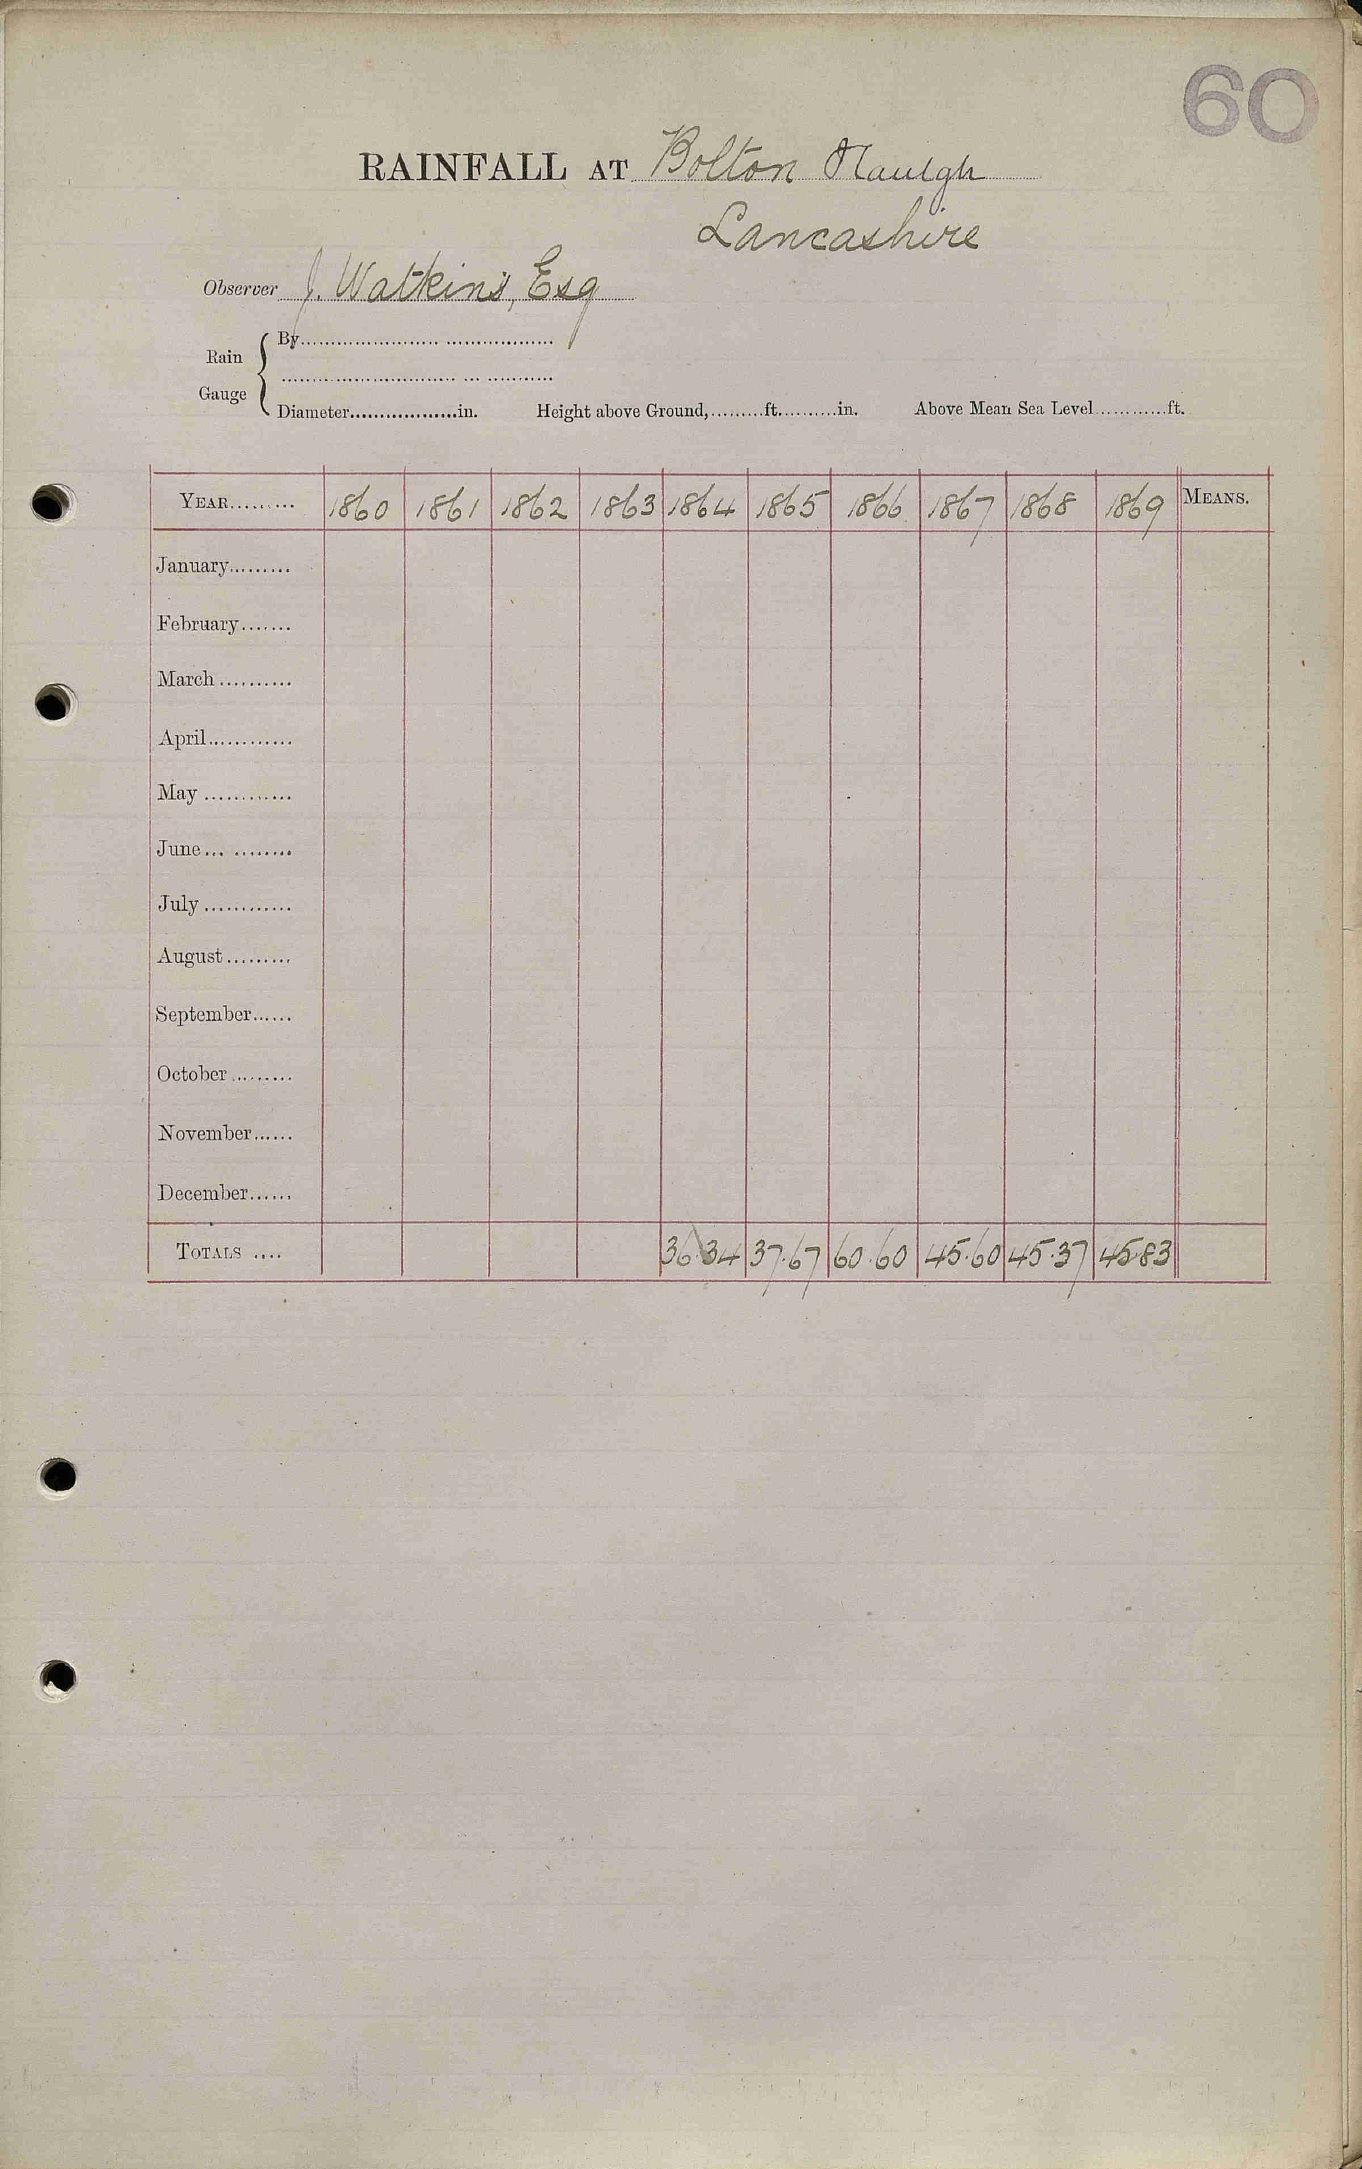 60
RAINFALL AT Bolton Haulgh
Lancashire
Observer J. Watkins, Esq
Rain Gauge
By
Diameter in. Height above Ground, ft. in. Above Mean Sea Level ft.
YEAR 1860 1861 1862 1863 1864 1865 1866 1867 1868 1869 MEANS.
January
February
March
April
May
June
July
August
September
October
November
December
TOTALS 36.34 37.67 60.60 45.60 45.37 45.83